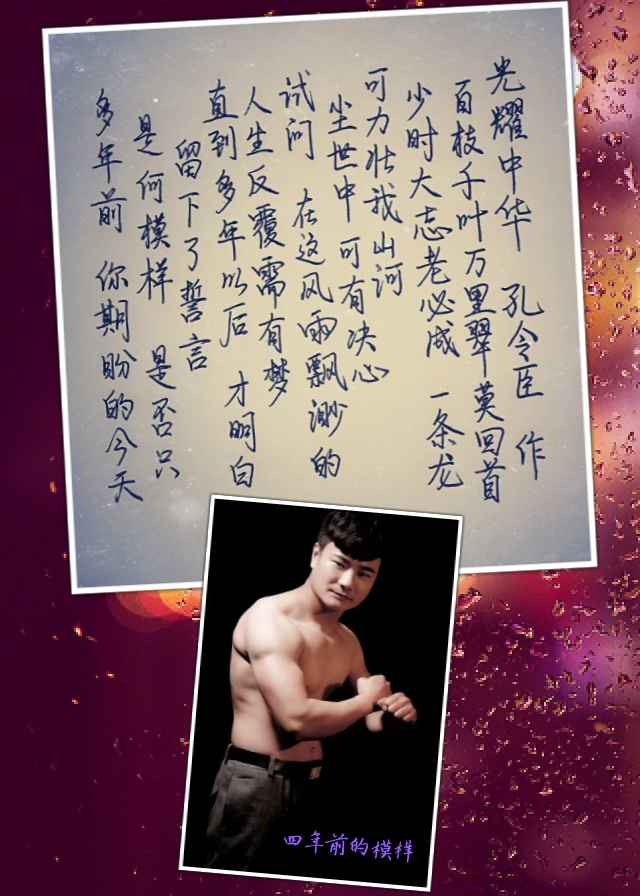 光耀中华 孔令臣 作
百枝千叶万里翠莫回首
少时大志老必成 一条龙
可力壮我山河
尘世中 可有决心
试问 在这风雨飘渺的
人生反覆需有梦
直到多年以后 才明白
留下了誓言
是何模样 是否只
多年前 你期盼的今天
四年前的模样